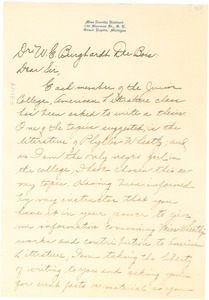 Dr. W. E. Burghardt Du Bois.
Dear Sir,
Each member of the Junior
College, American Literature class
has been asked to write a thesis.
One of the topics suggested, is the
literature of Phyllis Wheatly, and
as I am the only negro girl in
the college, I have chosen this as
my topic. Having been informed
by my instructor that you
have it in your power to give
me information concerning Miss Wheatly's
works and contributions to American
Literature, I am taking the liberty
of writing to you and asking you
for such facts or material as you